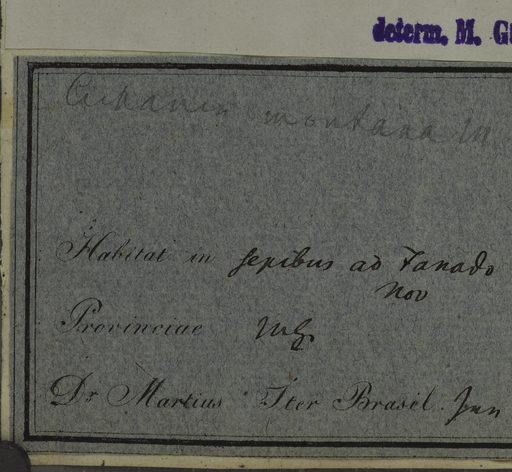 determ. M. G
montana M
Habitat in sepibus ad Tanado
Nov
Provinciae MG
Dr Martius Iter Brasil. Jun